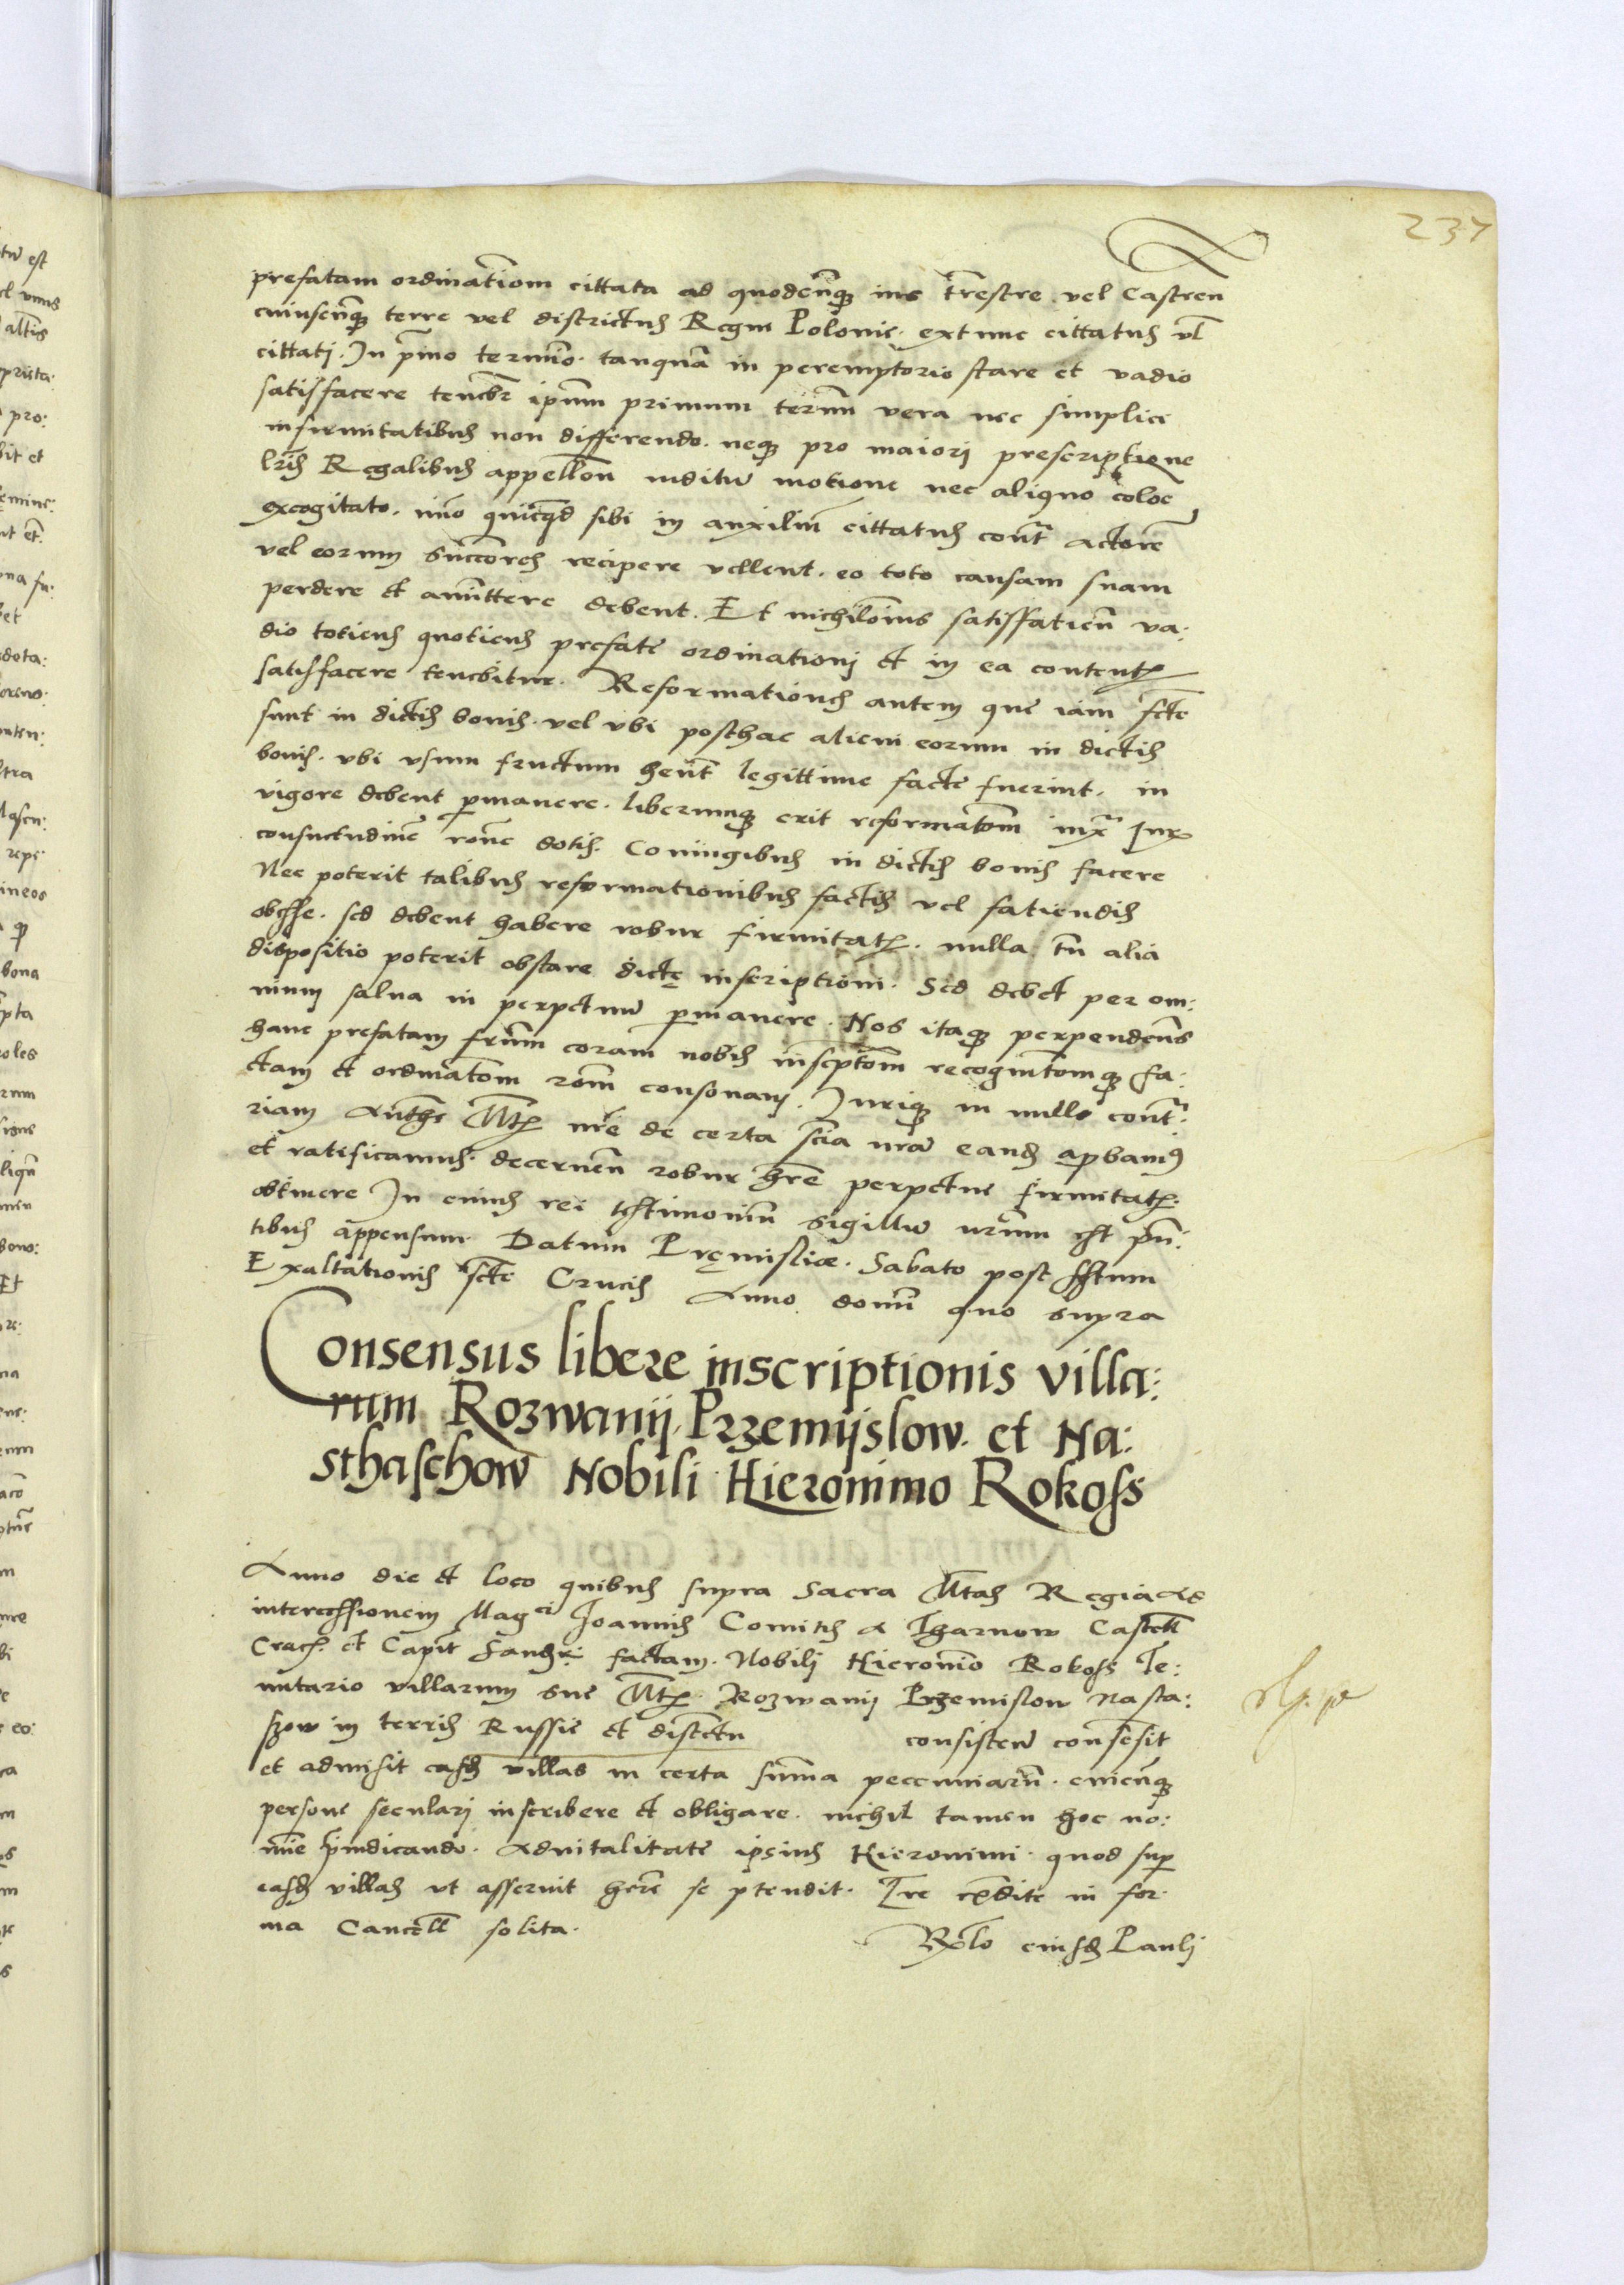 237
prefatam ordinatiom cittata ad quodcunq ius trestre vel Castren
cuiuscunq terre vel districtus Regni Polonie. extunc cittatus vl
cittati. In primo termino. tanquam in peremptorio stare et vadio
satisfacere tenebr ipsum primum terminum vera nec simplici
infirmitatibus non differendo. neq pro maiori prescriptione
lris Regalibus appellon inditu motione nec aliquo colore
excogitato. imo quicqd sibi in auxilium cittatus contra actorem
vel eorum succores recipere vellent. eo toto causam suam
perdere et amittere debent. Et nichilominus satisfatien va:
dio totiens quotiens prefate ordinationi et in ea contentis
satisfacere tenebitur. Reformationes autem que iam fcte
sunt in dictis bonis. vel vbi posthac alicui eorum in dictis
bonis. vbi vsum fructum hent legittime facte fuerint. in
vigore debent pmanere. liberumq erit reformatom iuxta Jur.
consuetudine rone dotis. Coniugibus in dictis bonis facere
Nec poterit talibus reformationibus factis vel fatiendis
obesse. sed debent habere robur firmitatis. nulla tn alia
dispositio poterit obstare dictę inscriptioni. Sed debet per om:
nium salua in perpetuu pmanere. Nos itaq perpendens
hanc prefatam frum coram nobis inscptom recognitomq fa:
ctam et ordinatom rom consonam. Juriq in nullo contra:
riam Authe Mtis nre de certa scia nra eand apbamus
et ratificamus. decernen robur hre perpetue firmitatis.
obtinere In cuius rei testimonium sigillu nrum est pn:
tibus appensum. Datum Pręmisliae. Sabato post festum
Exaltationis scte Crucis Anno domi quo supra
Consensus libere inscriptionis villa:
rum Rozwanij. Przemijslow. et Na:
sthaschow Nobili Hieronimo Rokoss
Anno die et loco quibus supra Sacra Mtas Regia ad
intercessionem Magci Joannis Comitis a Tharnow Castell
Crac. et Capit Sand. factam. Nobili Hieronimo Rokoss Te:
nutario villarum sue Mtis. Rozwanij Przemislow Nasta:
szow in terris Russie et districtu consisten consensit
et admisit easd villas in certa summa peccuniarum. cuicunq
persone seculari inscribere et obligare. nichil tamen hoc no:
mine preiudicando. Aduitalitate ipsius Hieronimi. quod sup
easd villas vt asseruit here se ptendit. Lre expedite in for
ma Cancell solita.
Rlo eiusd Pauli